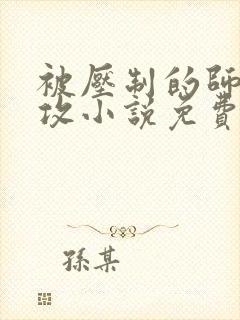 被壓制的師
攻小說免費
孫某